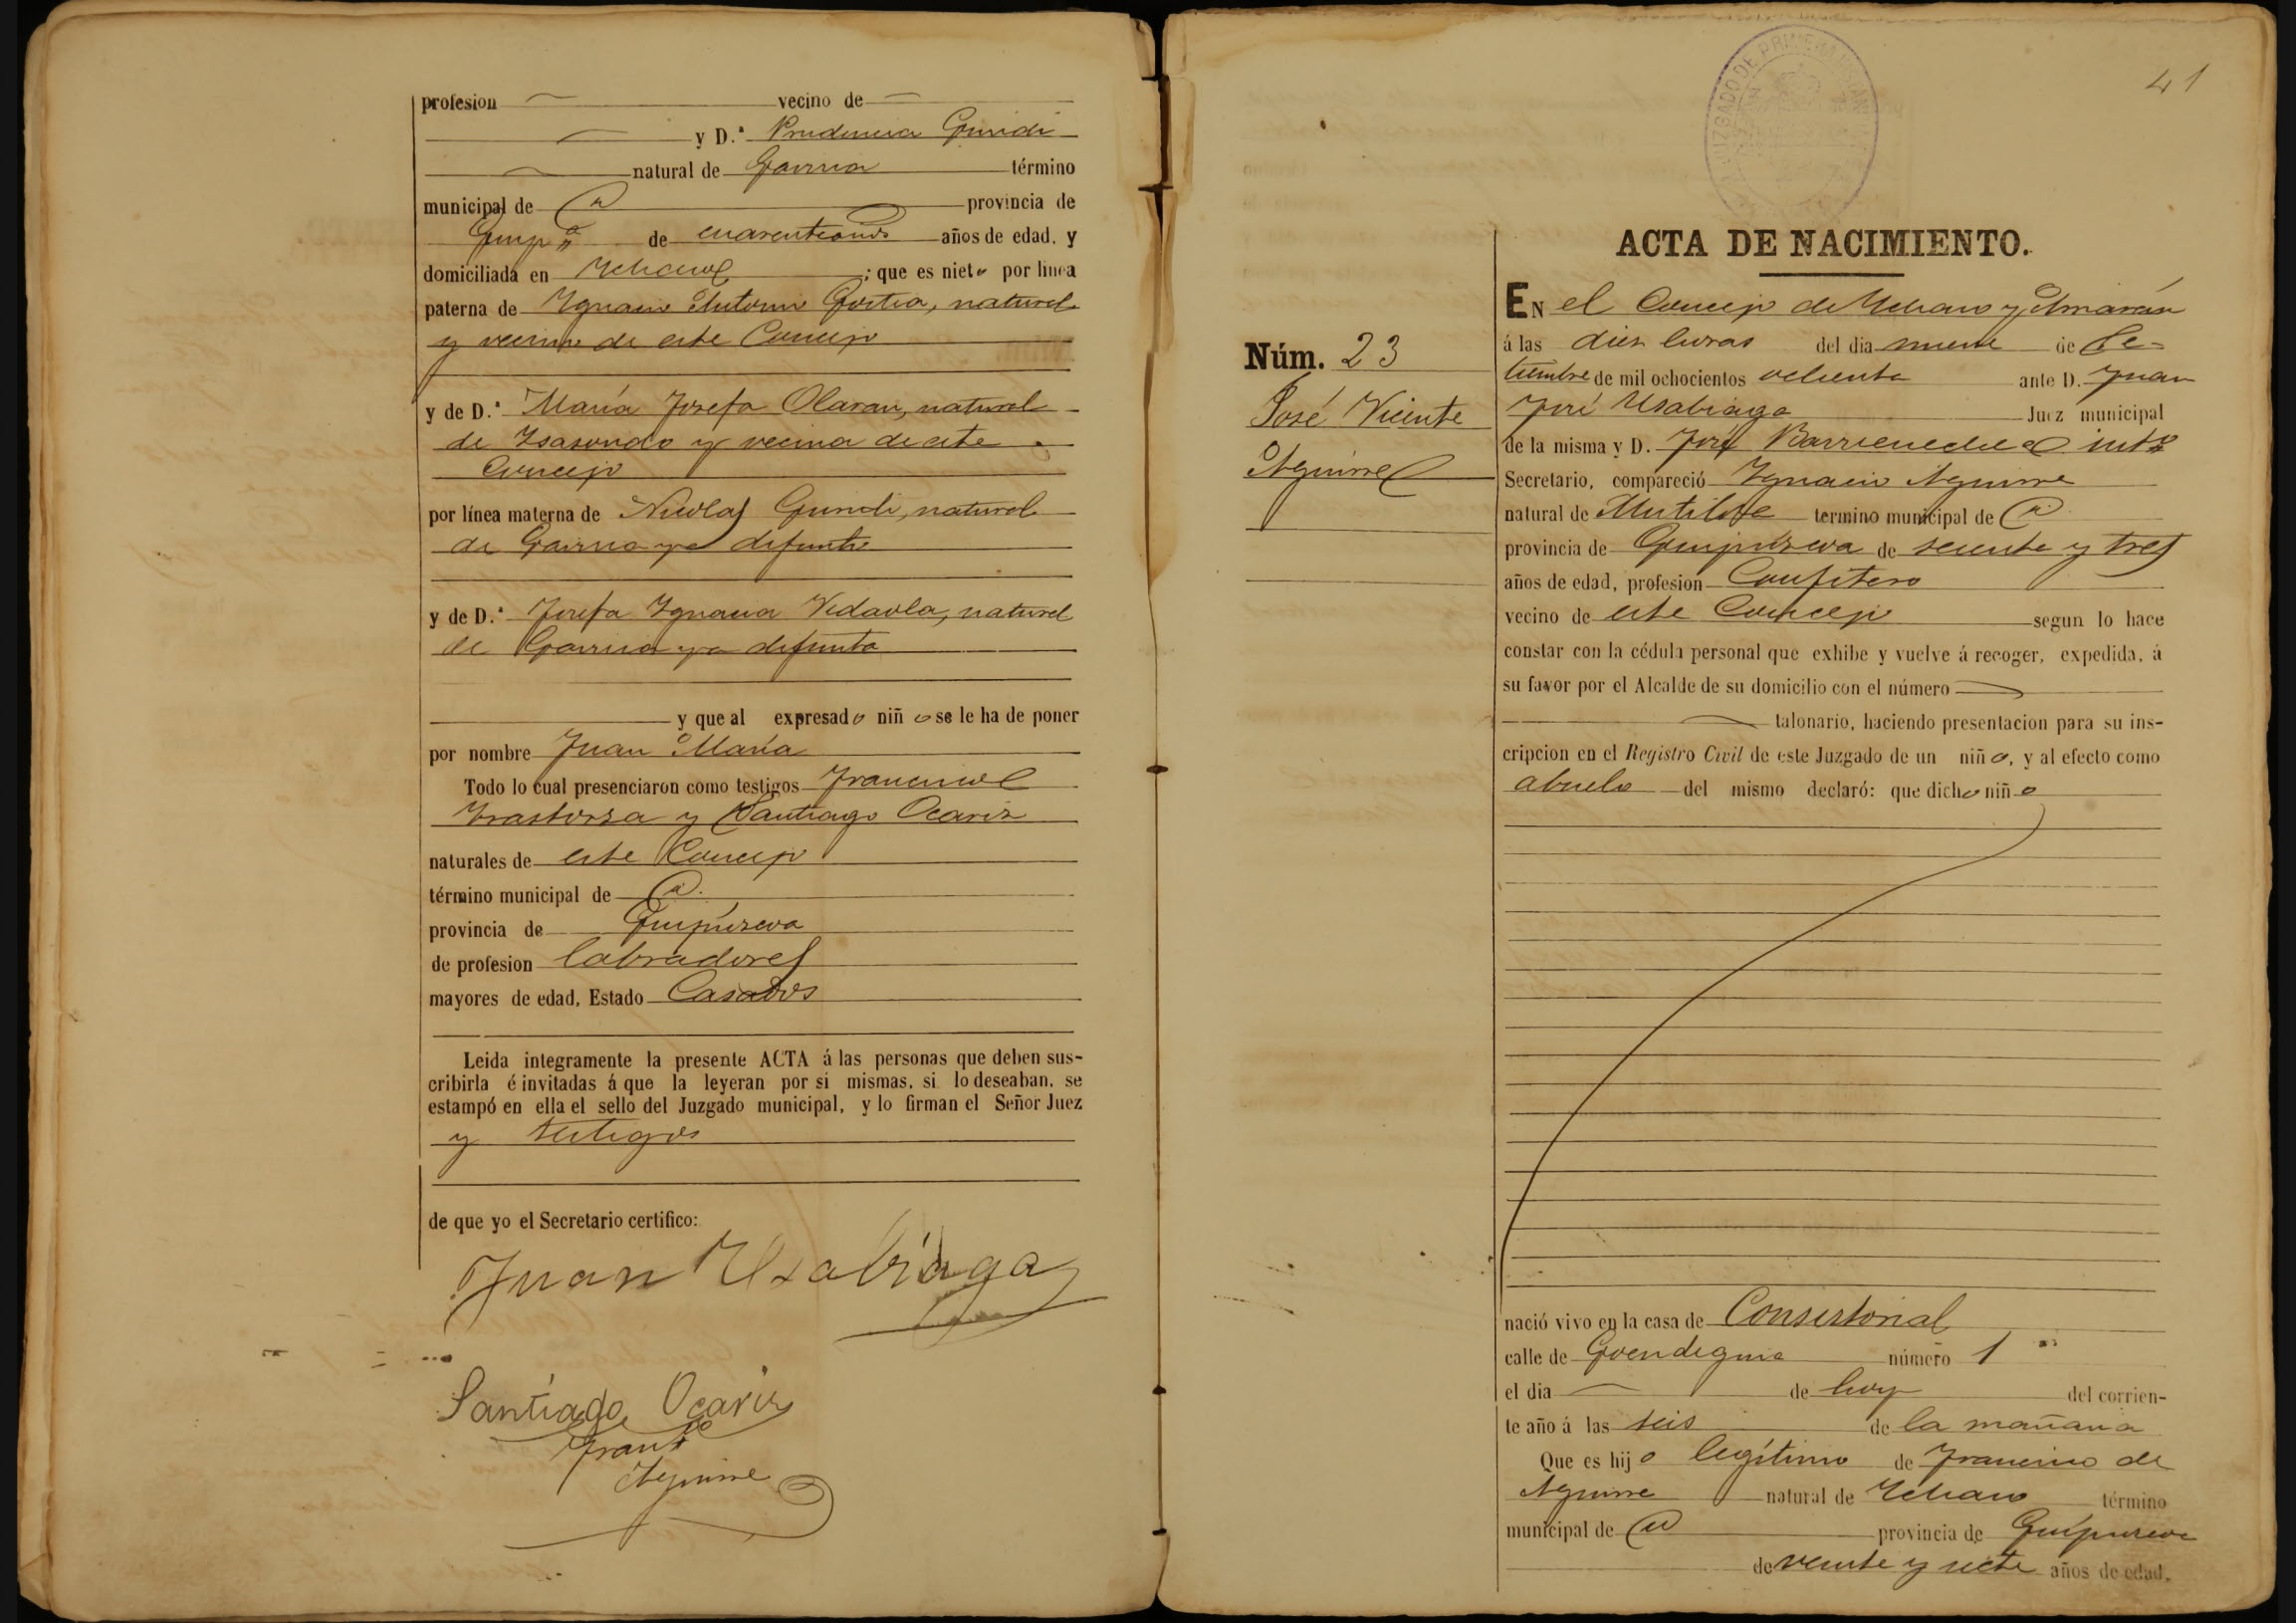 profesion vecino de
y D.ª Prudencia Guridi
natural de Gainza término
municipal de id provincia de
Guip.ª de cuarenta años de edad, y
domiciliada en Ychaso ; que es nieto por linea
paterna de Ygnacio Antonio Gostia, natural
y vecino de este Concejo
y de D.ª María Josefa Olaran, natural
de Ysasondo y vecina de este
Concejo
por línea materna de Nicolas Guridi, natural
de Gainza ya difunto
y de D.ª Josefa Ygnacia Vidaola, natural
de Gainza ya difunta
y que al expresado niño se le ha de poner
por nombre Juan María
Todo lo cual presenciaron como testigos Francisco
Yrastorza y Santiago Ocariz
naturales de este Concejo
término municipal de id.
provincia de Guipúzcoa
de profesion labradores
mayores de edad, Estado Casados
Leida integramente la presente ACTA á las personas que deben sus-
cribirla é invitadas á que la leyeran por si mismas, si lo deseaban, se
estampó en ella el sello del Juzgado municipal, y lo firman el Señor Juez
y testigos
de que yo el Secretario certifico:
Juan Usabiaga
Santiago Ocariz
Fran.co
Aguirre
41
JUZGADO DE PRIMERA
ACTA DE NACIMIENTO.
Núm. 23
José Vicente
Aguirre
EN el Concejo de Ychaso y Arriarán
á las diez horas del dia nueve de Se-
tiembre de mil ochocientos ochenta ante D. Juan
José Usabiaga Juez municipal
de la misma y D. José Barrenechea int.º
Secretario, compareció Ygnacio Aguirre
natural de Mutiloa termino municipal de id
provincia de Guipúzcoa de sesenta y tres
años de edad, profesion Confitero
vecino de este Concejo segun lo hace
constar con la cédula personal que exhibe y vuelve á recoger, expedida, á
su favor por el Alcalde de su domicilio con el número
talonario, haciendo presentacion para su ins-
cripcion en el Registro Civil de este Juzgado de un niño, y al efecto como
abuelo del mismo declaró: que dicho niño
nació vivo en la casa de Consistorial
calle de Goendegui número 1
el dia de hoy del corrien-
te año á las seis de la mañana
Que es hijo legítimo de Francisco de
Aguirre natural de Ychaso término
municipal de id provincia de Guipúzcoa
de veinte y siete años de edad,